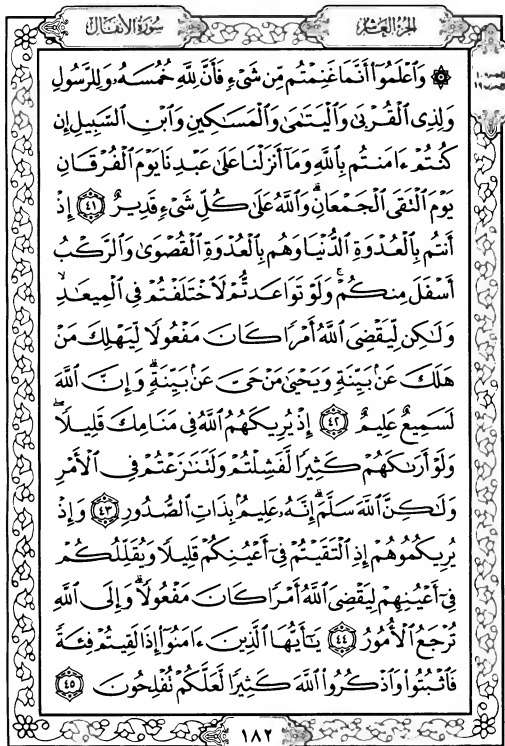 سُورَةُ الأَنفَالِ
الجُزءُ العَاشِرُ
۞ وَٱعۡلَمُوٓاْ أَنَّمَا غَنِمۡتُم مِّن شَيۡءٖ فَأَنَّ لِلَّهِ خُمُسَهُۥ وَلِلرَّسُولِ
وَلِذِي ٱلۡقُرۡبَىٰ وَٱلۡيَتَٰمَىٰ وَٱلۡمَسَٰكِينِ وَٱبۡنِ ٱلسَّبِيلِ إِن
كُنتُمۡ ءَامَنتُم بِٱللَّهِ وَمَآ أَنزَلۡنَا عَلَىٰ عَبۡدِنَا يَوۡمَ ٱلۡفُرۡقَانِ
يَوۡمَ ٱلۡتَقَى ٱلۡجَمۡعَانِۗ وَٱللَّهُ عَلَىٰ كُلِّ شَيۡءٖ قَدِيرٌ ٤١ إِذۡ
أَنتُم بِٱلۡعُدۡوَةِ ٱلدُّنۡيَا وَهُم بِٱلۡعُدۡوَةِ ٱلۡقُصۡوَىٰ وَٱلرَّكۡبُ
أَسۡفَلَ مِنكُمۡۚ وَلَوۡ تَوَاعَدتُّمۡ لَٱخۡتَلَفۡتُمۡ فِي ٱلۡمِيعَٰدِ
وَلَٰكِن لِّيَقۡضِيَ ٱللَّهُ أَمۡرٗا كَانَ مَفۡعُولٗا لِّيَهۡلِكَ مَنۡ
هَلَكَ عَنۢ بَيِّنَةٖ وَيَحۡيَىٰ مَنۡ حَيَّ عَنۢ بَيِّنَةٖۗ وَإِنَّ ٱللَّهَ
لَسَمِيعٌ عَلِيمٌ ٤٢ إِذۡ يُرِيكَهُمُ ٱللَّهُ فِي مَنَامِكَ قَلِيلٗاۖ
وَلَوۡ أَرَىٰكَهُمۡ كَثِيرٗا لَّفَشِلۡتُمۡ وَلَتَنَٰزَعۡتُمۡ فِي ٱلۡأَمۡرِ
وَلَٰكِنَّ ٱللَّهَ سَلَّمَۗ إِنَّهُۥ عَلِيمُۢ بِذَاتِ ٱلصُّدُورِ ٤٣ وَإِذۡ
يُرِيكُمُوهُمۡ إِذِ ٱلۡتَقَيۡتُمۡ فِيٓ أَعۡيُنِكُمۡ قَلِيلٗا وَيُقَلِّلُكُمۡ
فِيٓ أَعۡيُنِهِمۡ لِيَقۡضِيَ ٱللَّهُ أَمۡرٗا كَانَ مَفۡعُولٗاۗ وَإِلَى ٱللَّهِ
تُرۡجَعُ ٱلۡأُمُورُ ٤٤ يَٰٓأَيُّهَا ٱلَّذِينَ ءَامَنُوٓاْ إِذَا لَقِيتُمۡ فِئَةٗ
فَٱثۡبُتُواْ وَٱذۡكُرُواْ ٱللَّهَ كَثِيرٗا لَّعَلَّكُمۡ تُفۡلِحُونَ ٤٥
١٨٢